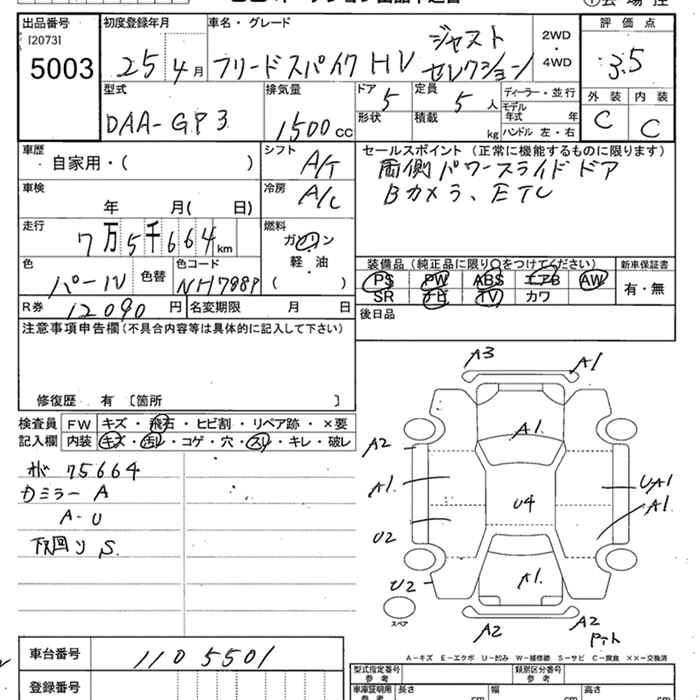 出品番号 初度登録年月 車名・グレード 評価点
[2073]
5003 25年4月 フリードスパイク HV ジャスト セレクション 2WD ・ 4WD 3.5
型式 排気量 ドア 定員 ディーラー・並行 外装 内装
DAA-GP3 1500cc 5 5人 モデル年式 年 C C
形状 積載 kg ハンドル 左・右
車歴 シフト セールスポイント (正常に機能するものに限ります)
自家用・( ) A/T 両側パワースライドドア
車検 冷房 Bカメラ、ETC
年 月( 日) A/C
走行 燃料
7万5千664km ガソリン
色 色替 色コード 軽・油 装備品 (純正品に限り○をつけてください) 新車保証書
パール NH788P ( ) PS PW ABS エアB AW 有・無
R券 12090円 名変期限 月 日 SR ナビ TV カワ
注意事項申告欄(不具合内容等は具体的に記入して下さい) 後日品
修復歴 有 〔箇所 〕
検査員 FW キズ・飛石・ヒビ割・リペア跡・×要
記入欄 内装 キズ・汚レ・コゲ・穴・スレ・キレ・破レ
75664
カミラー A
A-U
下回り S
A3 A1
A1
A2
A1 U4 UA1
A1
U2
U2 A1
スペア A2 A2
A-キズ E-エクボ U-凹み W-補修跡 S-サビ C-腐食 ××-交換済
車台番号 1105501
型式指定番号 参考 類別区分番号 参考
登録番号 車庫証明用 参考 長さ cm 幅 cm 高さ cm